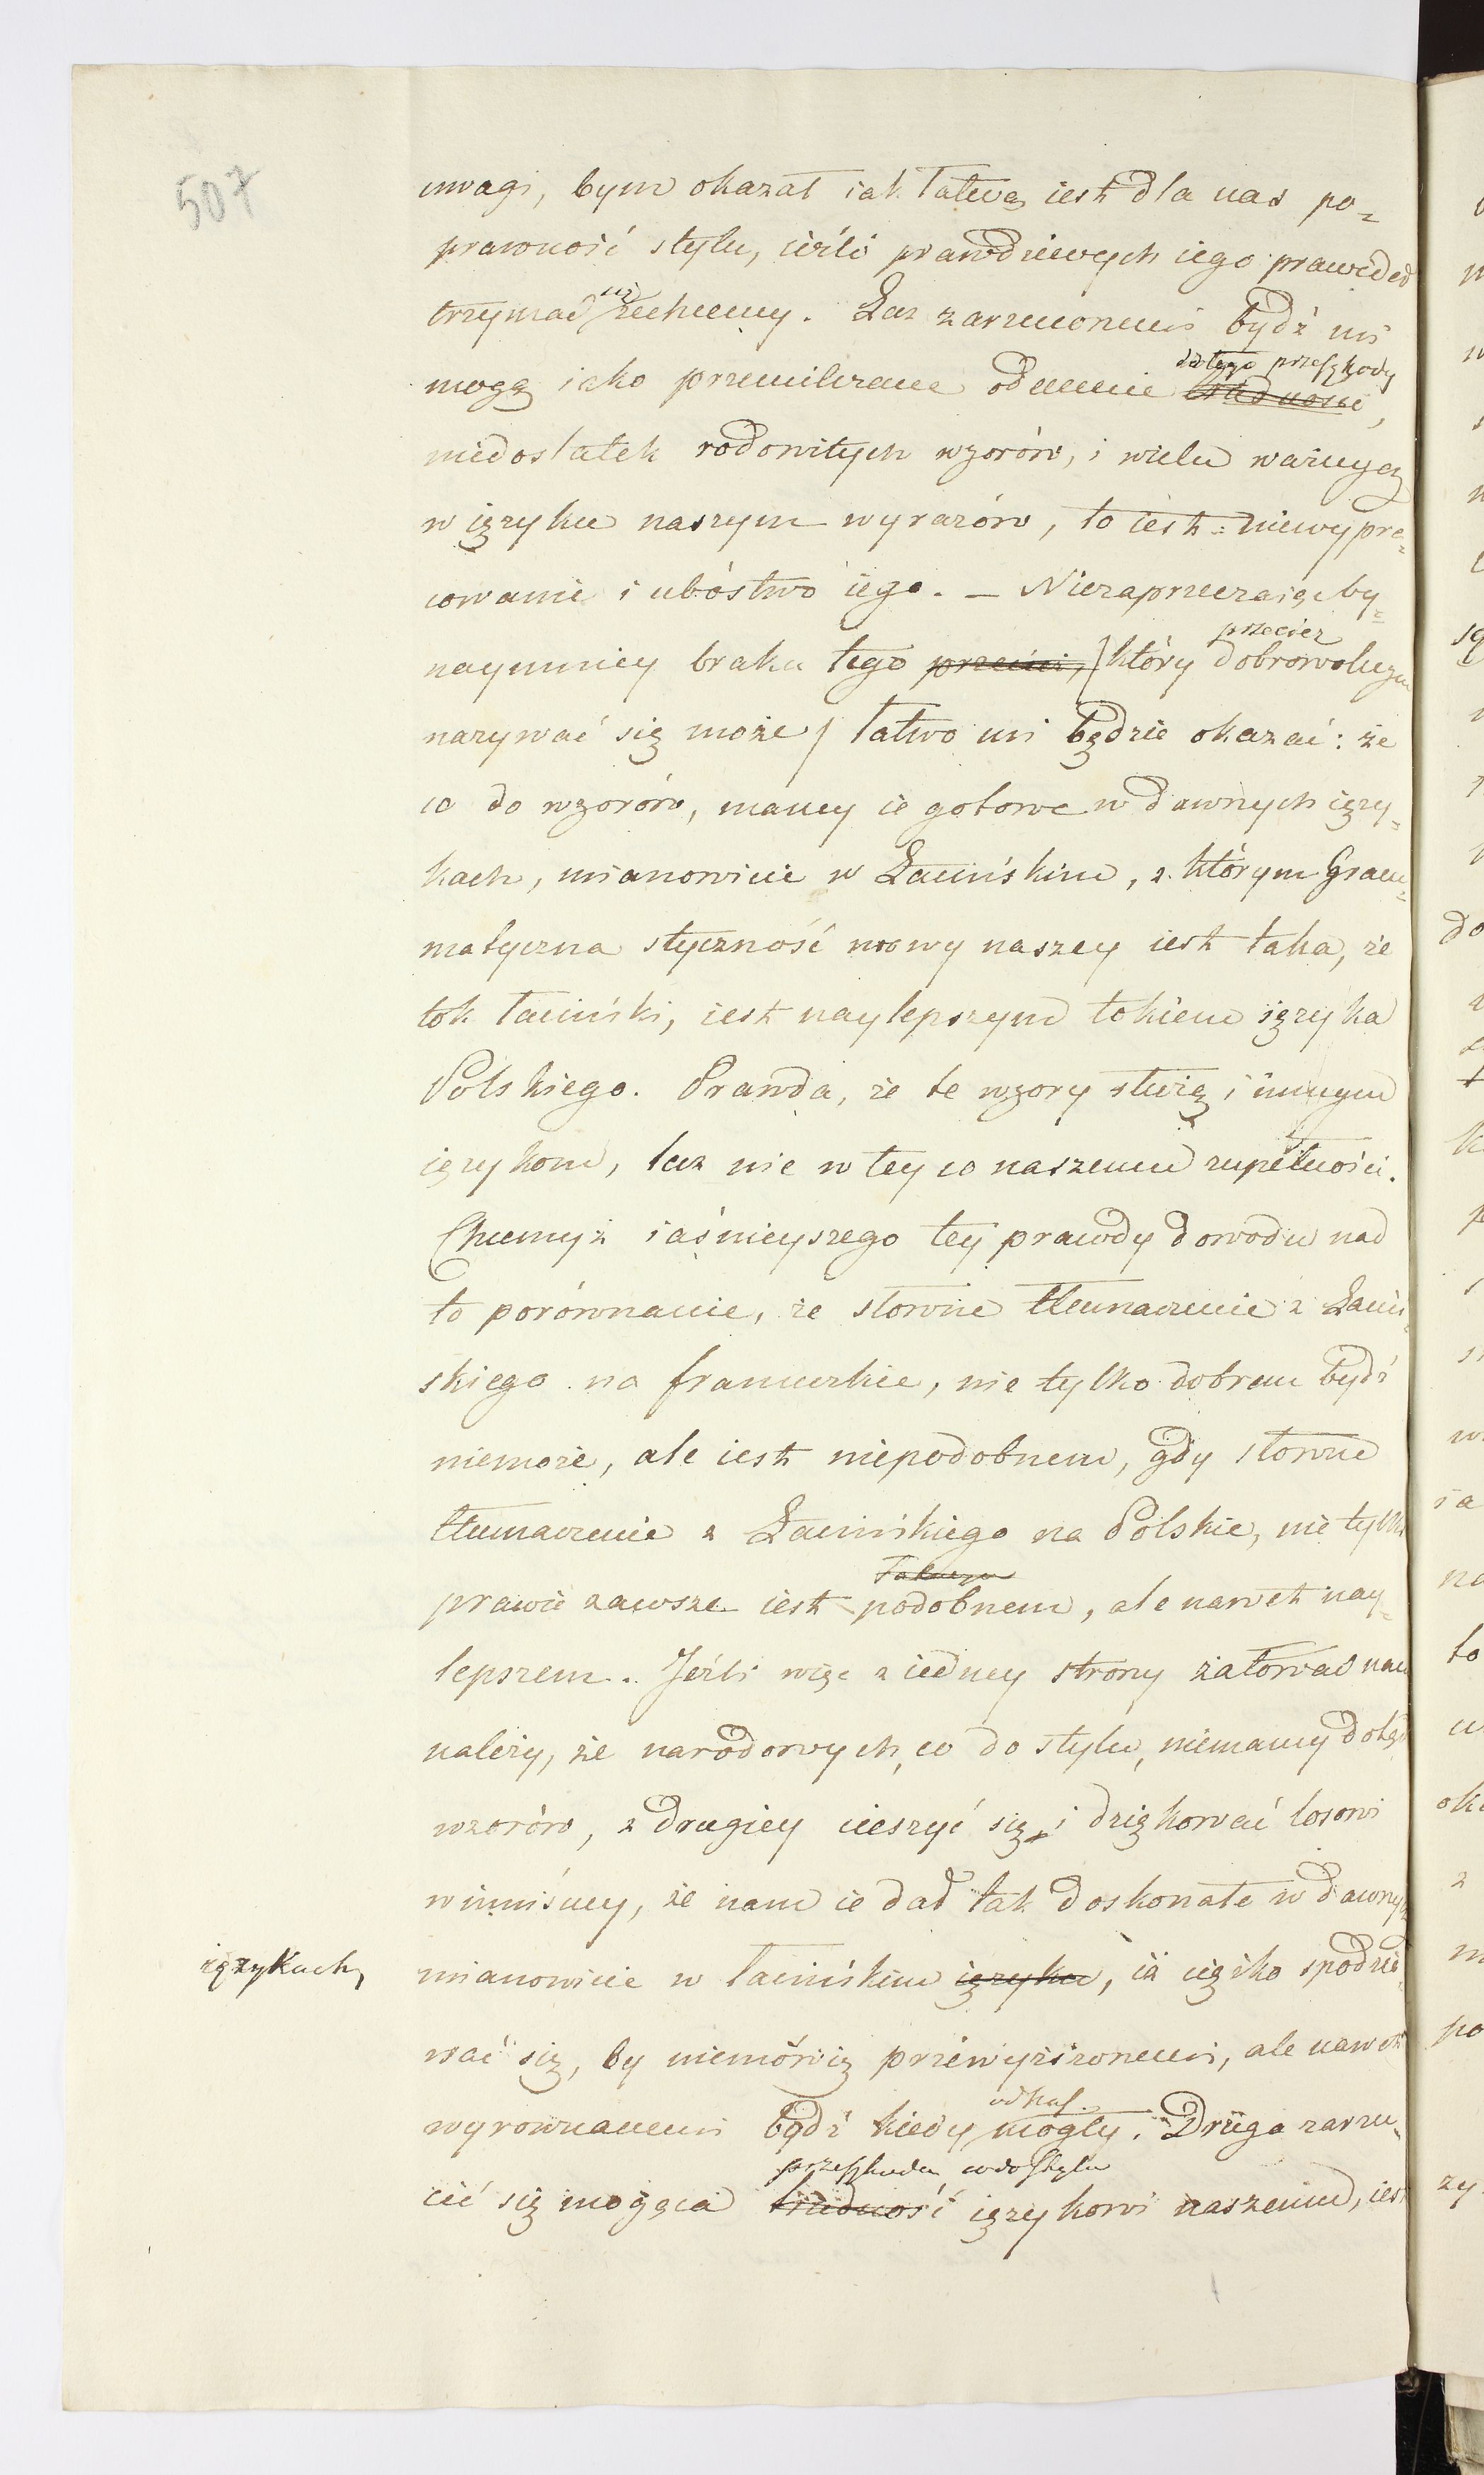 507
uwagi, bym okazał iak łatwą iest dla nas po=
prawność stylu, ieźli prawdziwych iego prawideł
trzymać się zechcemy. Lecz zarzuconemi bydź mi
mogą iako przemilczane odemnie do tego przeszkody,
niedostatek rodowitych wzorów, i wielu ważnych
w ięzyku naszym wyrazów, to iest: niewypra=
cowanie i ubóstwo iego. — Niezaprzeczaiąc by=
naymniey braku tego przecież, (który przecież dobrowolnym
nazywać się może) łatwo mi będzie okazać: że
co do wzorów, mamy ie gotowe w dawnych ięzy=
kach, mianowicie w Łacińskim, z którym Gram=
matyczna styczność mowy naszey iest taka, że
tok łaciński, iest naylepszym tokiem ięzyka
Polskiego. Prawda, że te wzory służą i innym
ięzykom, lecz nie w tey co naszemu zupełności.
Chcemyż iaśnieyszego tey prawdy dowodu nad
to porównanie, że słowne tłumaczenie z Łaciń=
skiego na francuzkie, nie tylko dobrem bydź
niemoże, ale iest niepodobnem, gdy słowne
tłumaczenie z Łacińskiego na Polskie, nie tylko
prawie zawsze iest podobnem, ale nawet nay=
lepszem. Jeźli więc z iedney strony żałować nam
należy, że narodowych, co do stylu, niemamy dotąd
wzorów, z drugiey cieszyć się i dziękować losowi
winniśmy, że nam ie dał tak doskonałe w dawnych
ięzykach,
mianowicie w łacińskim ięzyku, iż ciężko spodzie=
wać się, by niemówię przewyższonemi, ale nawet
wyrownanemi bydź kiedy mogły. Druga zarzu=
cić się mogąca trudność przeszkoda co do stylu ięzykowi naszemu, iest